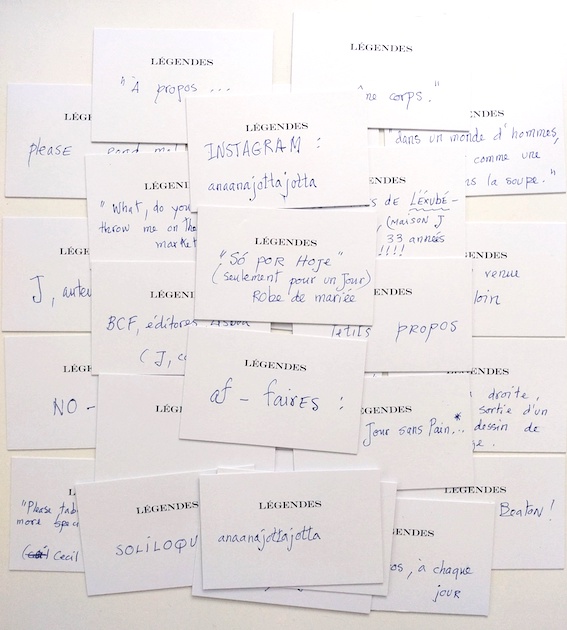 LÉGENDES
"À propos ...
LÉGENDES
corps."
LÉGENDES
INSTAGRAM :
anaanajottajotta
LÉG
please
NDES
"dans un monde d'hommes,
comme une
la soupe."
LÉGEN
"What, do you
throw me on the
market
DES
de L'EXUBÉ-
(MAISON J
33 années
!!!!
LÉGENDES
"SÓ POR HOJE"
(seulement pour un jour)
ROBE de mariée
LÉGE
J, auteu
venue
loin
LÉGEN
BCF, éditores Lisbon
(J, co
PROPOS
LÉGENDES
af - faires :
LÉGE
NO -
LÉGENDES
droite,
sortie d'un
dessin de
LÉGE
ÉGENDES
Jour sans Pain*...
"Please
more
Cecil
LÉGENDES
Beaton!
LÉGENDES
SOLILOQU
LÉGENDES
anaanajottajotta
GENDES
, à chaque
jour